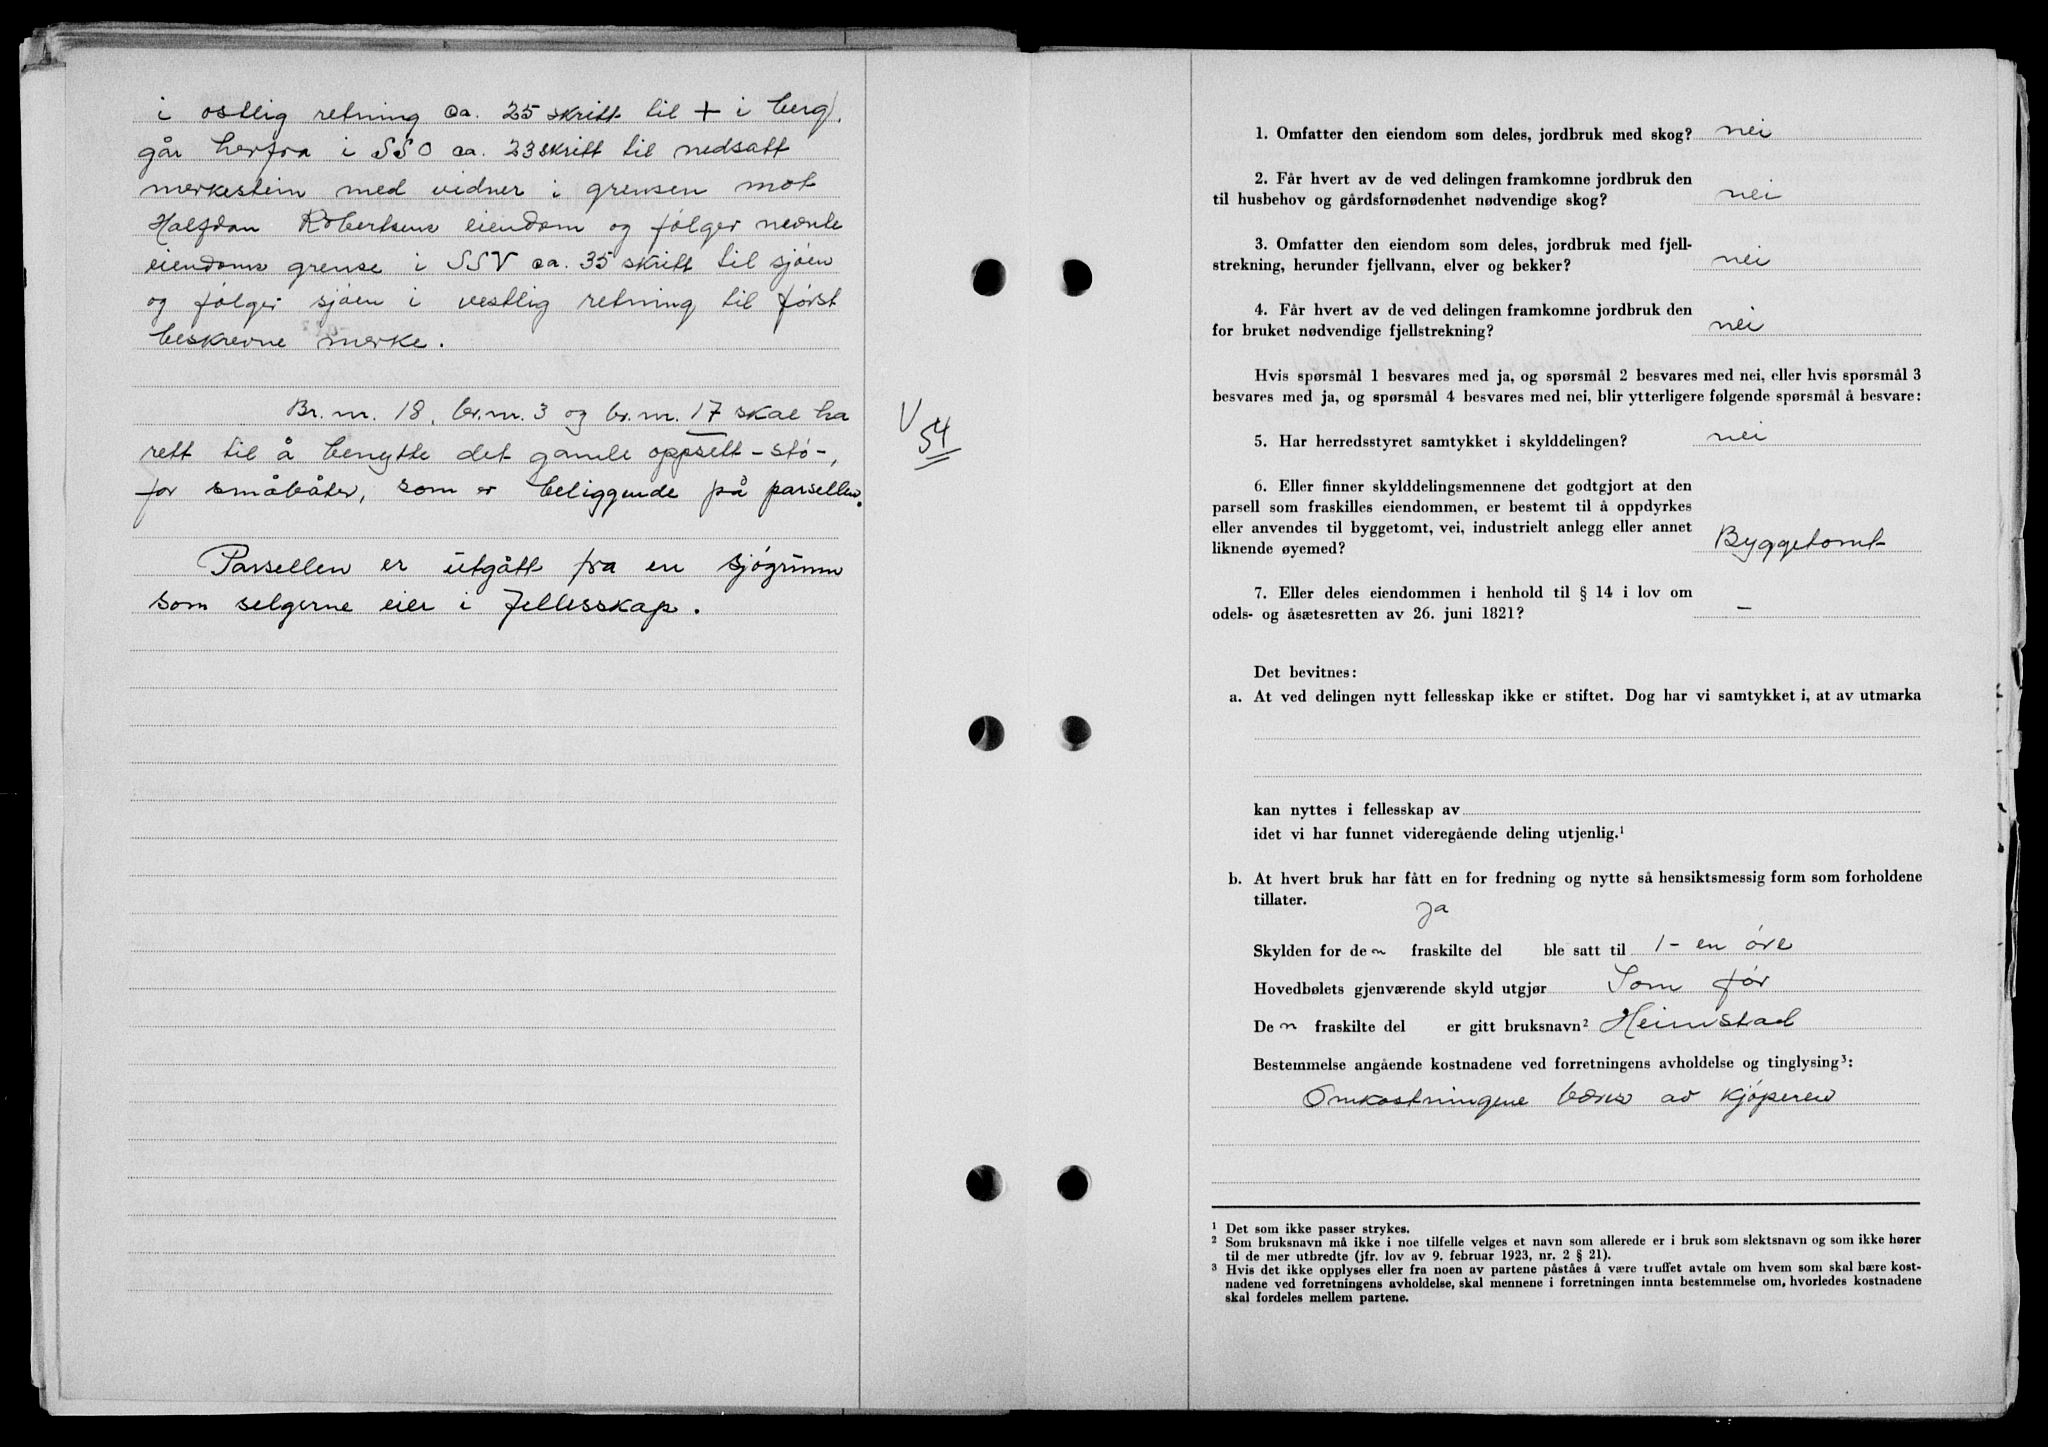 i østlig retning ca. 25 skritt til + i berg,
går herfra i SSO ca. 23 skritt til nedsatt
merkestein med vidner i grensen mot
Halfdan Robertsens eiendom og følger nevnte
eiendoms grense i SSV ca. 35 skritt til sjøen
og følger sjøen i vestlig retning til først
beskrevne merke.
Br. nr. 18, br. nr. 3 og br. nr. 17 skal ha
rett til å benytte det gamle oppsett -stø-,
for småbåter, som er beliggende på parsellen.
Parsellen er utgått fra en sjøgrunn
som selgerne eier i fellesskap.
V
54
1. Omfatter den eiendom som deles, jordbruk med skog? nei
2. Får hvert av de ved delingen framkomne jordbruk den
til husbehov og gårdsfornødenhet nødvendige skog? nei
3. Omfatter den eiendom som deles, jordbruk med fjell-
strekning, herunder fjellvann, elver og bekker? nei
4. Får hvert av de ved delingen framkomne jordbruk den
for bruket nødvendige fjellstrekning? nei
Hvis spørsmål 1 besvares med ja, og spørsmål 2 besvares med nei, eller hvis spørsmål 3
besvares med ja, og spørsmål 4 besvares med nei, blir ytterligere følgende spørsmål å besvare:
5. Har herredsstyret samtykket i skylddelingen? nei
6. Eller finner skylddelingsmennene det godtgjort at den
parsell som fraskilles eiendommen, er bestemt til å oppdyrkes
eller anvendes til byggetomt, vei, industrielt anlegg eller annet
liknende øyemed? Byggetomt
7. Eller deles eiendommen i henhold til § 14 i lov om
odels- og åsætesretten av 26. juni 1821? –
Det bevitnes:
a. At ved delingen nytt fellesskap ikke er stiftet. Dog har vi samtykket i, at av utmarka
kan nyttes i fellesskap av
idet vi har funnet videregående deling utjenlig.¹
b. At hvert bruk har fått en for fredning og nytte så hensiktsmessig form som forholdene
tillater.
ja
Skylden for den fraskilte del ble satt til 1 - en øre
Hovedbølets gjenværende skyld utgjør Som før
Den fraskilte del er gitt bruksnavn² Heimstad
Bestemmelse angående kostnadene ved forretningens avholdelse og tinglysing³:
Omkostningene bæres av kjøperen
¹ Det som ikke passer strykes.
² Som bruksnavn må ikke i noe tilfelle velges et navn som allerede er i bruk som slektsnavn og som ikke hører
til de mer utbredte (jfr. lov av 9. februar 1923, nr. 2 § 21).
³ Hvis det ikke opplyses eller fra noen av partene påståes å være truffet avtale om hvem som skal bære kost-
nadene ved forretningens avholdelse, skal mennene i forretningen innta bestemmelse om, hvorledes kostnadene
skal fordeles mellem partene.